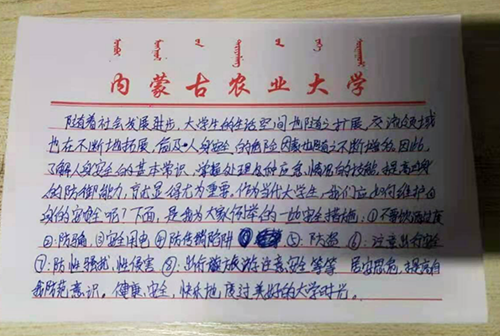 内蒙古农业大学
随着社会发展进步，大学生的生活空间也随之扩展，交流领域
也在不断地拓展，危及人身安全的危险因素也随之不断增多。因此，
了解人身安全的基本常识，掌握处理应急情况的技能，提高自我
的防御能力，就显得尤为重要。作为当代大学生，我们应如何维护自
身的安全呢？下面，是我为大家例举的一些安全措施：①不要饮酒过度
②：防骗 ③安全用电 ④防传销陷阱 ⑤：防盗 ⑥：注意出行安全
⑦：防性骚扰，性侵害 ⑧：出行旅游注意安全等等 居安思危，提高自
我防范意识。健康，安全，快乐地度过美好的大学时光。